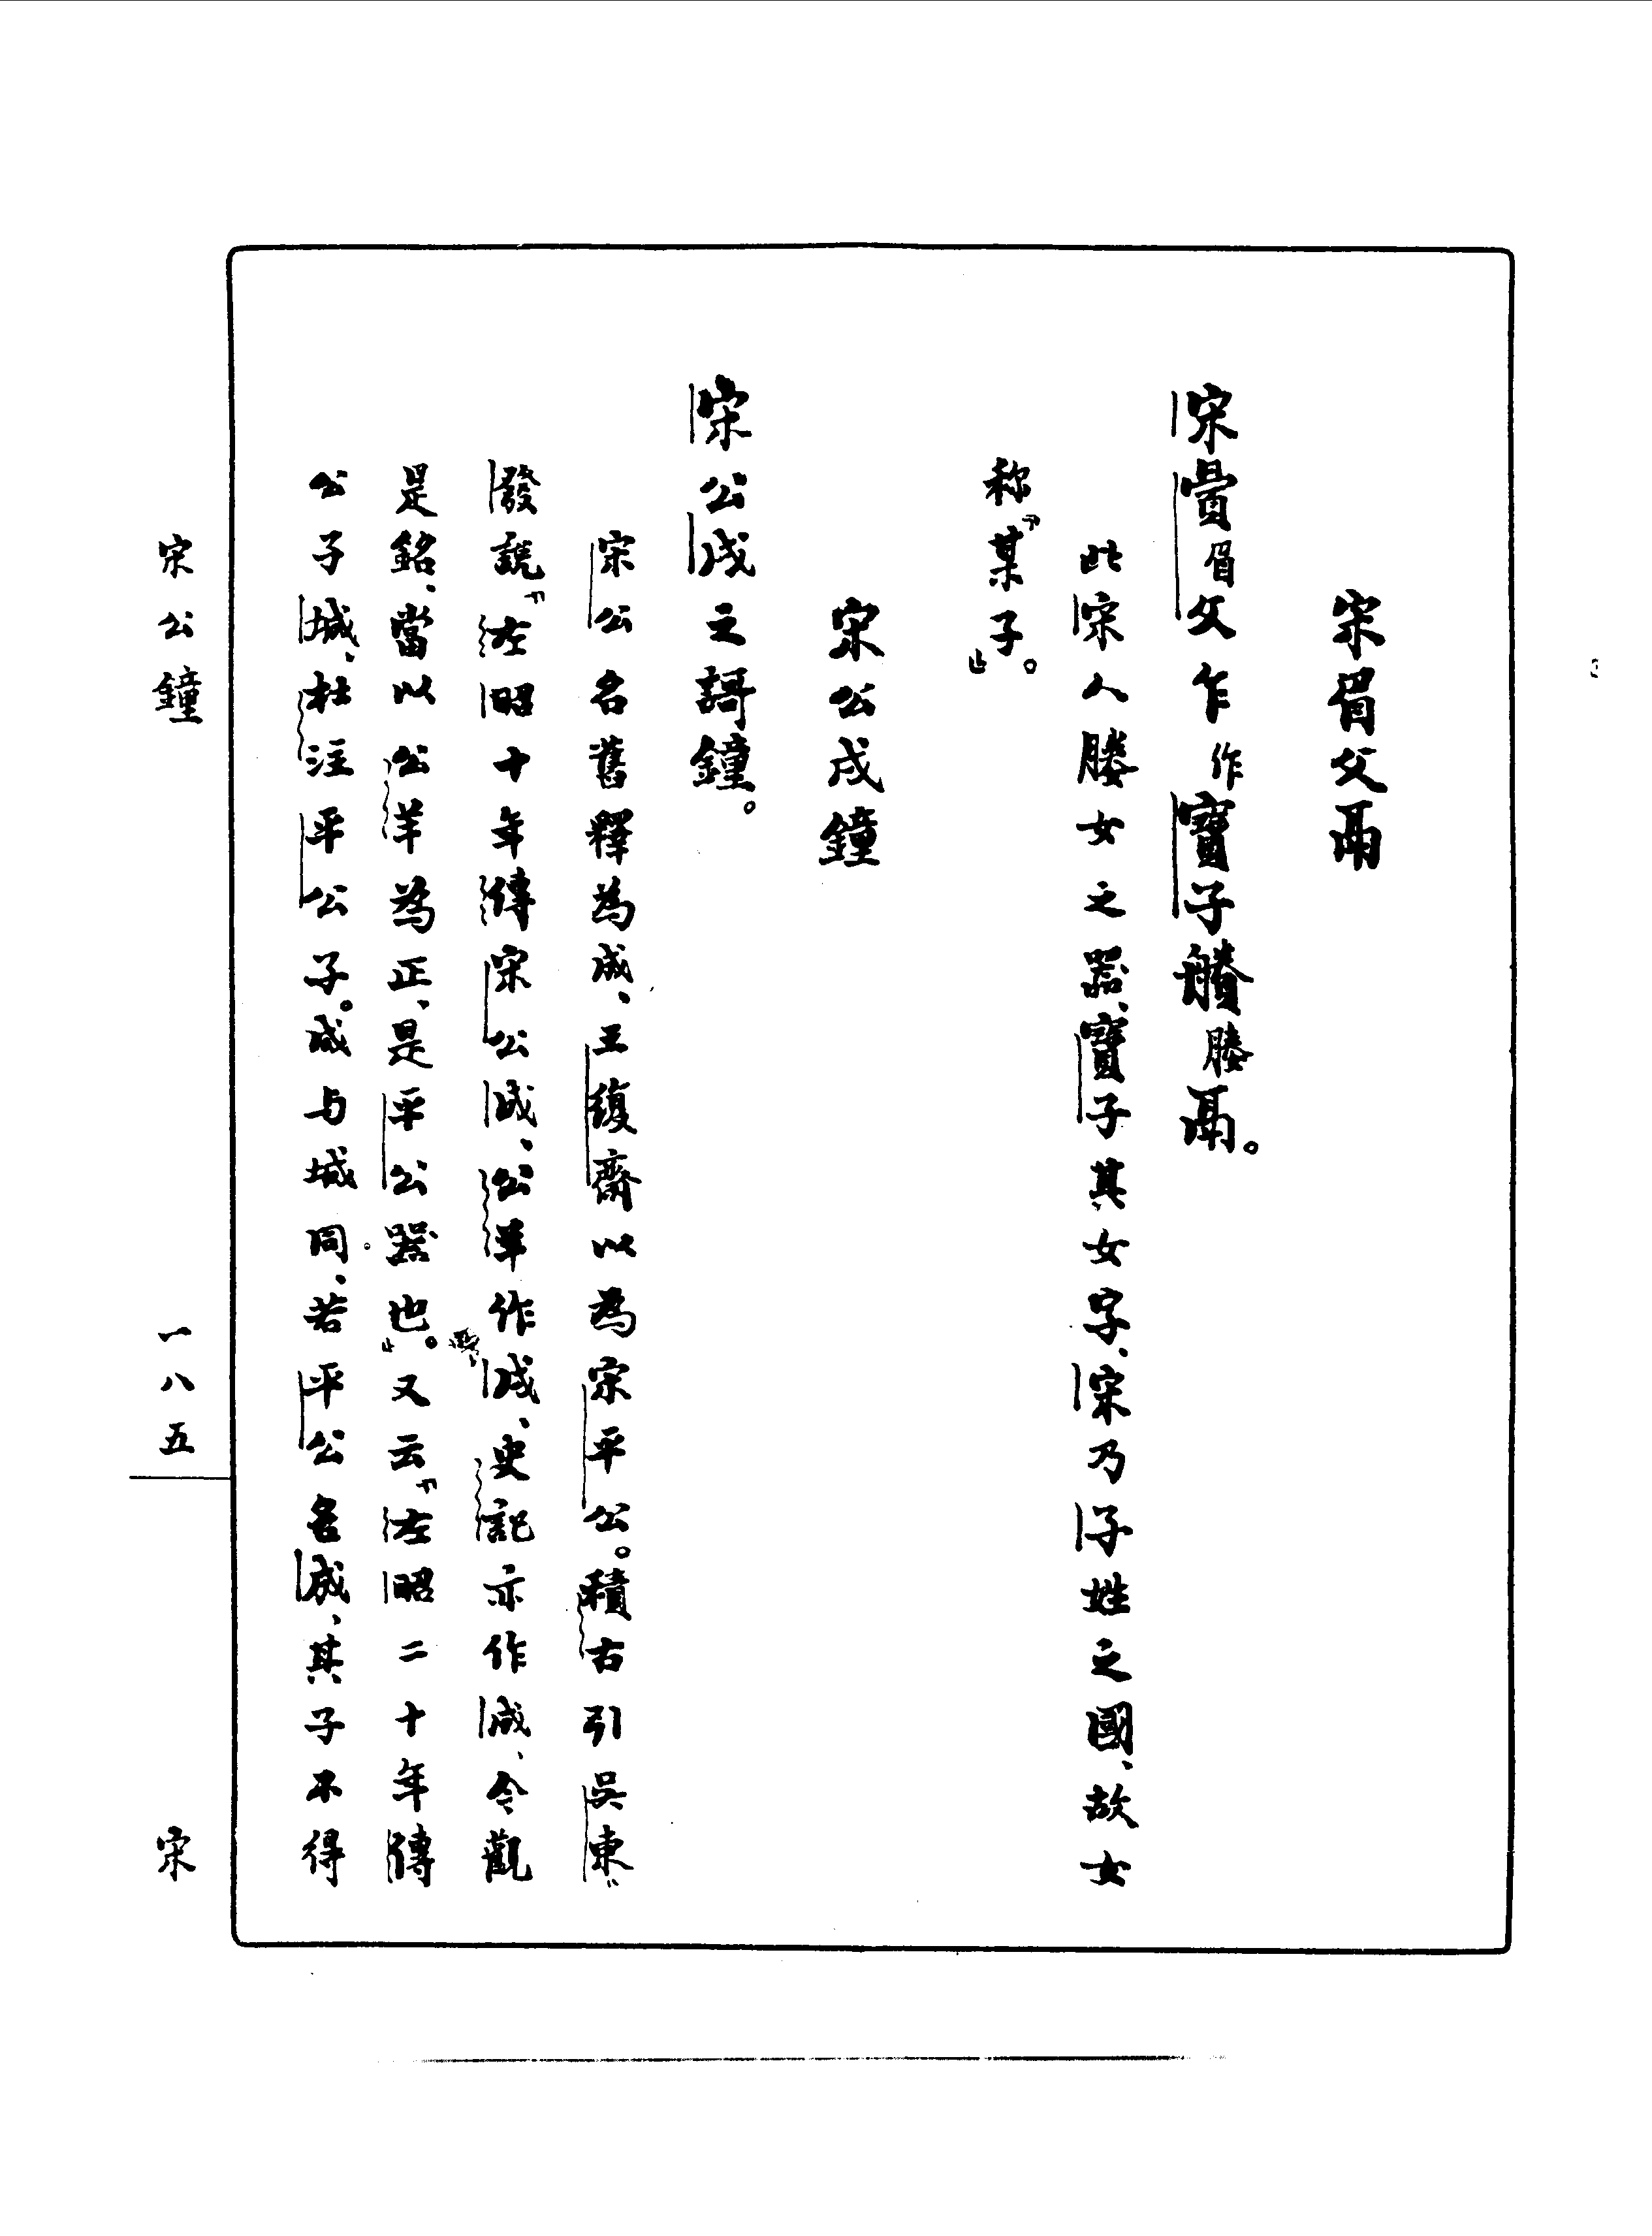 宋眉父鬲
宋眉父乍作寶子賸媵鬲。
此宋人媵女之器、寶子其女字、宋乃子姓之國、故女
称「某子」。
宋公戌鐘
宋公戌之謌鐘。
宋公名舊釋為成、王復齋以為宋平公。積古引吳東
發說、「左昭十年傳宋公成、公羊作戌、史記亦作成、今觀
是銘、當以公羊為正、是平公器也。」又云「左昭二十年傳
公子城、杜注平公子。成与城同、若平公名成、其子不得
宋公鐘
一八五
宋